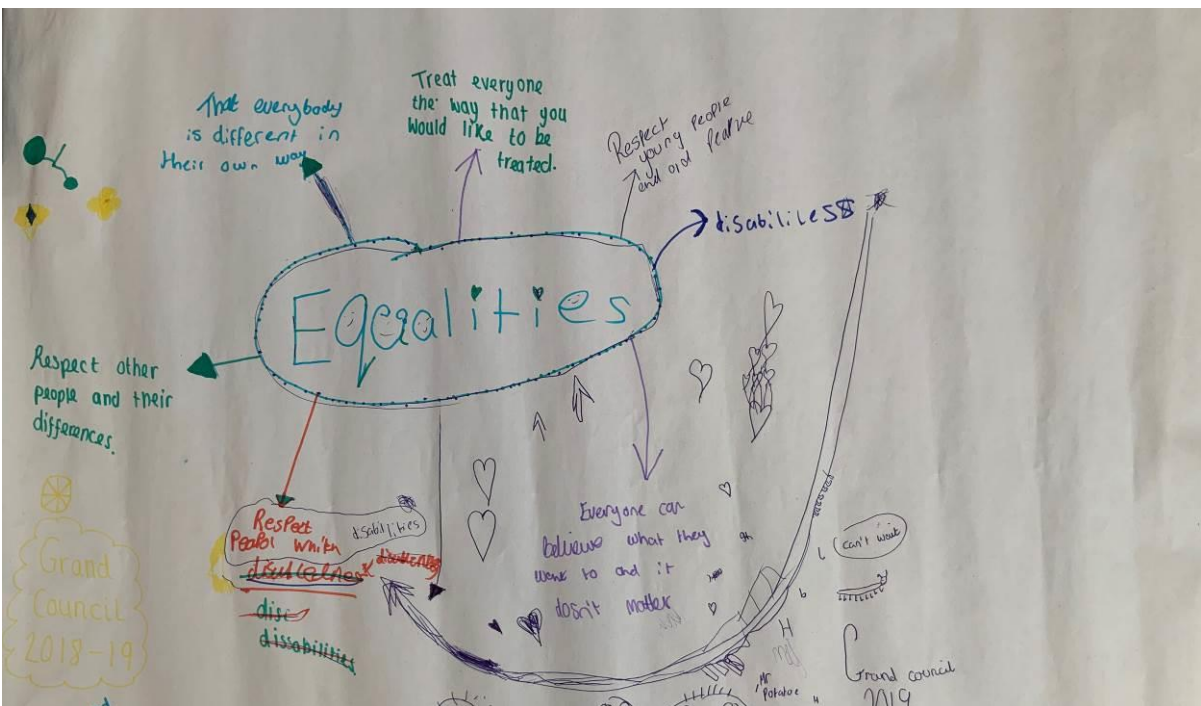 That everybody
is different in
their own way
Treat everyone
the way that you
would like to be
treated.
Respect
young people
and old
disabilities
Equalities
Respect other
people and their
differences.
Respect
Peapol whith
disabilities
dissabilities
Everyone can
believe what they
want to and it
dosn't matter
can't wait
Grand
Council
2018-19
Mr
Potatoe
Grand council
2019